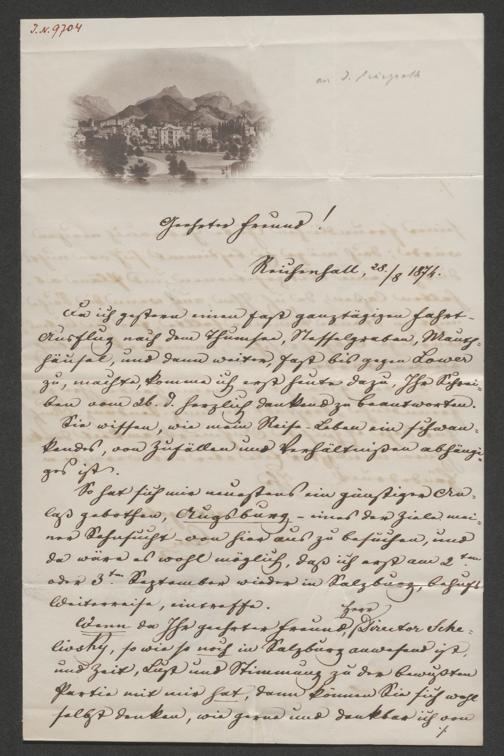 I.N. 9704
an J.
Geehrter Freund!
Reichenhall, 28./8 1874.
Da ich gestern einen fast ganztägigen Fahrt-
Ausflug nach dem Thumsee, Staffelgraben, Mauth-
häusel, und dann weiter, fast bis gegen Lower
zu, machte, komme ich erst heute dazu, Ihr Schrei-
ben vom 26. d. herzlich dankend zu beantworten.
Sie wissen, wie mein Reise-Leben ein schwan-
kendes, von Zufällen und Verhältnißen abhängi-
ges ist.
So hat sich mir neuestens ein günstiger An-
laß gebothen, Augsburg – eines der Ziele mei-
ner Sehnsucht – von hier aus zu besuchen, und
da wäre es wohl möglich, daß ich erst am 2ten
oder 3ten September wieder in Salzburg, behufs
Weiterreise, eintreffe.
Wenn da Ihr geehrter Freund, Herr Director Sche-
liwsky, so wie so noch in Salzburg anwesend ist,
und Zeit, Lust und Stimmung zu der bewußten
Partie mit mir hat, dann können Sie sich wohl
selbst denken, wie gerne und dankbar ich von
./.